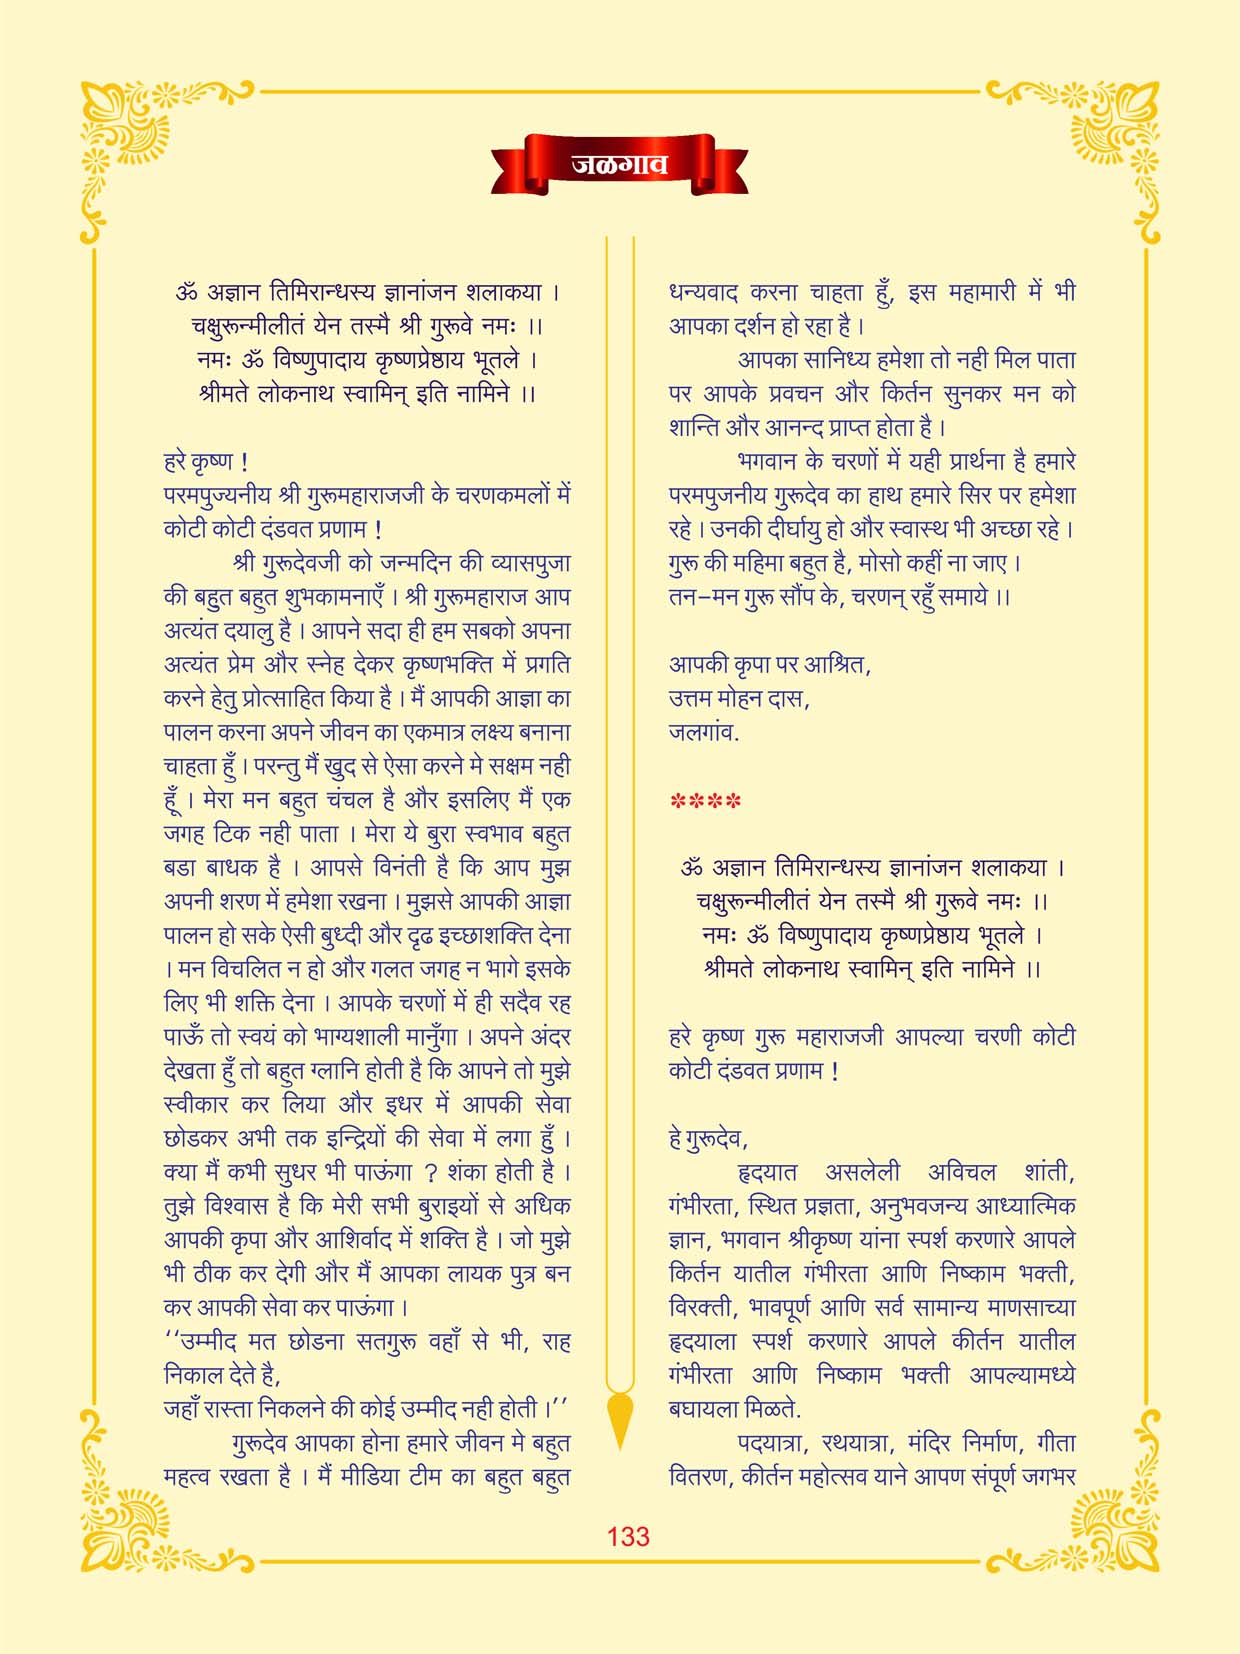 जळगाव
ॐ अज्ञान तिमिरान्धस्य ज्ञानांजन शलाकया ।
चक्षुरून्मीलीतं येन तस्मै श्री गुरूवे नमः ।।
नमः ॐ विष्णुपादाय कृष्णप्रेष्ठाय भूतले ।
श्रीमते लोकनाथ स्वामिन् इति नामिने ।।
हरे कृष्ण !
परमपुज्यनीय श्री गुरूमहाराजजी के चरणकमलों में
कोटी कोटी दंडवत प्रणाम !
श्री गुरूदेवजी को जन्मदिन की व्यासपुजा
की बहुत बहुत शुभकामनाएँ । श्री गुरूमहाराज आप
अत्यंत दयालु है । आपने सदा ही हम सबको अपना
अत्यंत प्रेम और स्नेह देकर कृष्णभक्ति में प्रगति
करने हेतु प्रोत्साहित किया है । मैं आपकी आज्ञा का
पालन करना अपने जीवन का एकमात्र लक्ष्य बनाना
चाहता हुँ । परन्तु मैं खुद से ऐसा करने मे सक्षम नही
हूँ । मेरा मन बहुत चंचल है और इसलिए मैं एक
जगह टिक नही पाता । मेरा ये बुरा स्वभाव बहुत
बडा बाधक है । आपसे विनंती है कि आप मुझ
अपनी शरण में हमेशा रखना । मुझसे आपकी आज्ञा
पालन हो सके ऐसी बुध्दी और दृढ इच्छाशक्ति देना
। मन विचलित न हो और गलत जगह न भागे इसके
लिए भी शक्ति देना । आपके चरणों में ही सदैव रह
पाऊँ तो स्वयं को भाग्यशाली मानुँगा । अपने अंदर
देखता हुँ तो बहुत ग्लानि होती है कि आपने तो मुझे
स्वीकार कर लिया और इधर में आपकी सेवा
छोडकर अभी तक इन्द्रियों की सेवा में लगा हुँ ।
क्या मैं कभी सुधर भी पाऊंगा ? शंका होती है ।
तुझे विश्वास है कि मेरी सभी बुराइयों से अधिक
आपकी कृपा और आशिर्वाद में शक्ति है । जो मुझे
भी ठीक कर देगी और मैं आपका लायक पुत्र बन
कर आपकी सेवा कर पाऊंगा ।
‘‘उम्मीद मत छोडना सतगुरू वहाँ से भी, राह
निकाल देते है,
जहाँ रास्ता निकलने की कोई उम्मीद नही होती ।’’
गुरूदेव आपका होना हमारे जीवन मे बहुत
महत्व रखता है । मैं मीडिया टीम का बहुत बहुत
धन्यवाद करना चाहता हुँ, इस महामारी में भी
आपका दर्शन हो रहा है ।
आपका सानिध्य हमेशा तो नही मिल पाता
पर आपके प्रवचन और किर्तन सुनकर मन को
शान्ति और आनन्द प्राप्त होता है ।
भगवान के चरणों में यही प्रार्थना है हमारे
परमपुजनीय गुरूदेव का हाथ हमारे सिर पर हमेशा
रहे । उनकी दीर्घायु हो और स्वास्थ भी अच्छा रहे ।
गुरू की महिमा बहुत है, मोसो कहीं ना जाए ।
तन–मन गुरू सौंप के, चरणन् रहुँ समाये ।।
आपकी कृपा पर आश्रित,
उत्तम मोहन दास,
जलगांव.
****
ॐ अज्ञान तिमिरान्धस्य ज्ञानांजन शलाकया ।
चक्षुरून्मीलीतं येन तस्मै श्री गुरूवे नमः ।।
नमः ॐ विष्णुपादाय कृष्णप्रेष्ठाय भूतले ।
श्रीमते लोकनाथ स्वामिन् इति नामिने ।।
हरे कृष्ण गुरू महाराजजी आपल्या चरणी कोटी
कोटी दंडवत प्रणाम !
हे गुरूदेव,
हृदयात असलेली अविचल शांती,
गंभीरता, स्थित प्रज्ञता, अनुभवजन्य आध्यात्मिक
ज्ञान, भगवान श्रीकृष्ण यांना स्पर्श करणारे आपले
किर्तन यातील गंभीरता आणि निष्काम भक्ती,
विरक्ती, भावपूर्ण आणि सर्व सामान्य माणसाच्या
हृदयाला स्पर्श करणारे आपले कीर्तन यातील
गंभीरता आणि निष्काम भक्ती आपल्यामध्ये
बघायला मिळते.
पदयात्रा, रथयात्रा, मंदिर निर्माण, गीता
वितरण, कीर्तन महोत्सव याने आपण संपूर्ण जगभर
133